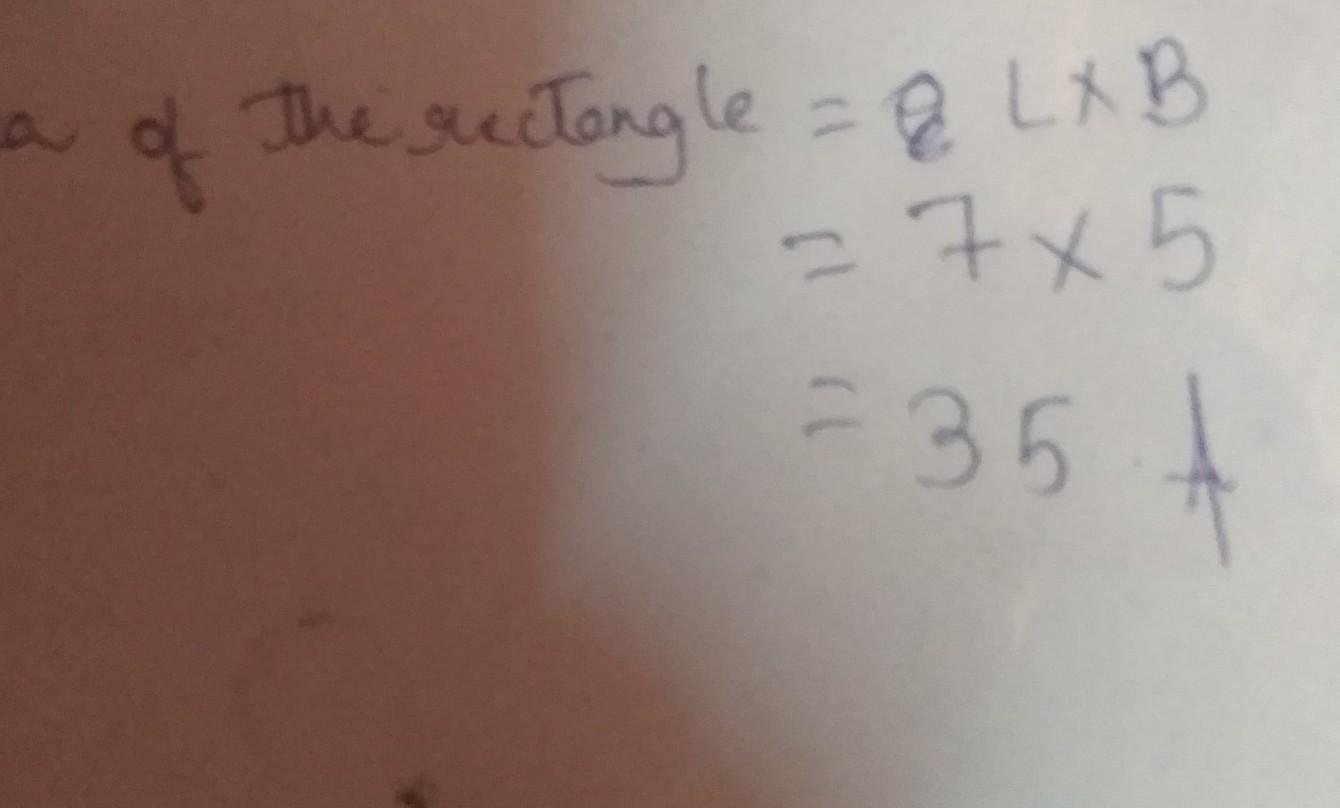 a of the rectangle = L x B
= 7 x 5
= 35